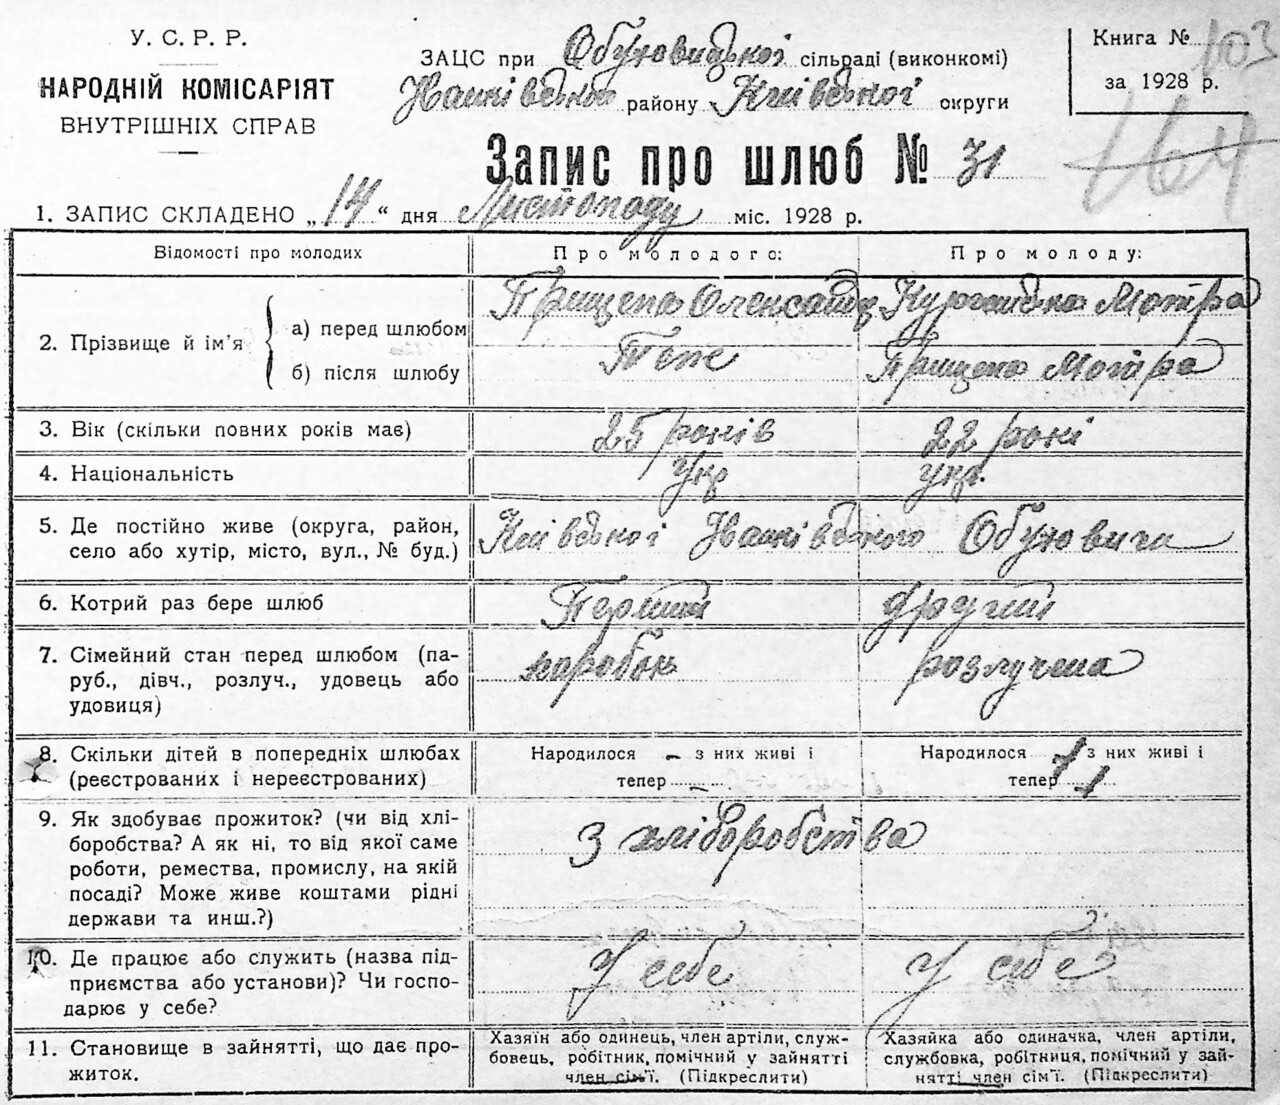 У. С. Р. Р.
НАРОДНІЙ КОМІСАРІЯТ
ВНУТРІШНІХ СПРАВ
ЗАЦС при Обуховицької сільраді (виконкомі)
району Київської округи
Книга № 103
за 1928 р.
164
Запис про шлюб № 31
1. ЗАПИС СКЛАДЕНО „14“ дня Листопаду міс. 1928 р.
Відомості про молодих
Про молодого:
Про молоду:
2. Прізвище й ім’я
а) перед шлюбом
Прищепа Олександр
Мотра
б) після шлюбу
Теж
Прищепа Мотра
3. Вік (скільки повних років має)
25 років
22 рокі
4. Національність
Укр
укр.
5. Де постійно живе (округа, район,
село або хутір, місто, вул., № буд.)
Київської Іванківського Обуховичи
6. Котрий раз бере шлюб
Перший
другий
7. Сімейний стан перед шлюбом (па-
руб., дівч., розлуч., удовець або
удовиця)
паробок
розлучена
8. Скільки дітей в попередніх шлюбах
(реєстрованих і нереєстрованих)
Народилося - з них живі і
тепер -
Народилося 1 з них живі і
тепер 1
9. Як здобуває прожиток? (чи від хлі-
боробства? А як ні, то від якої саме
роботи, ремества, промислу, на якій
посаді? Може живе коштами рідні
держави та инш.?)
З хліборобства
10. Де працює або служить (назва під-
приємства або установи)? Чи госпо-
дарює у себе?
У себе
У себе
11. Становище в зайнятті, що дає про-
житок.
Хазяїн або одинець, член артіли, служ-
бовець, робітник, помічний у зайнятті
член сім’ї. (Підкреслити)
Хазяйка або одиначка, член артіли,
службовка, робітниця, помічний у зай-
нятті член сім’ї. (Підкреслити)